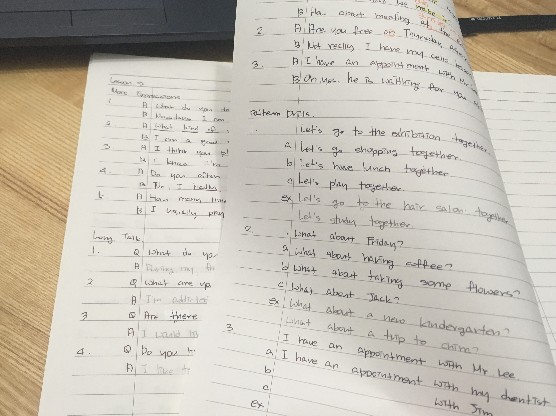 B How about meeting at the
2. A Are you free on Thursday
B Not really I have my
3. A I have an appointment with Mr
B Oh yes. he is waiting for you
Pattern Drills.
Let's go to the exhibition together
a Let's go shopping together
b Let's have lunch together
c Let's play together
ex Let's go to the hair salon together
Let's study together
2. What about Friday?
a What about having coffee?
b What about taking some flowers?
c What about Jack?
ex What about a new kindergarten?
What about a trip to China?
3 I have an appointment with Mr. Lee
a I have an appointment with my dentist
b
c with Jim
ex
Lesson
More
1. A What do you
B I am
2 A What kind of
B I am a good
3 A I think you
B I know
4. A Do you often
B No. I
5 A How many
B I usually play
Long Talk
1. Q What do you
A During my
2 Q What are
A I'm
3 Q Are there
A I want to
4. Q Do you
A I like to